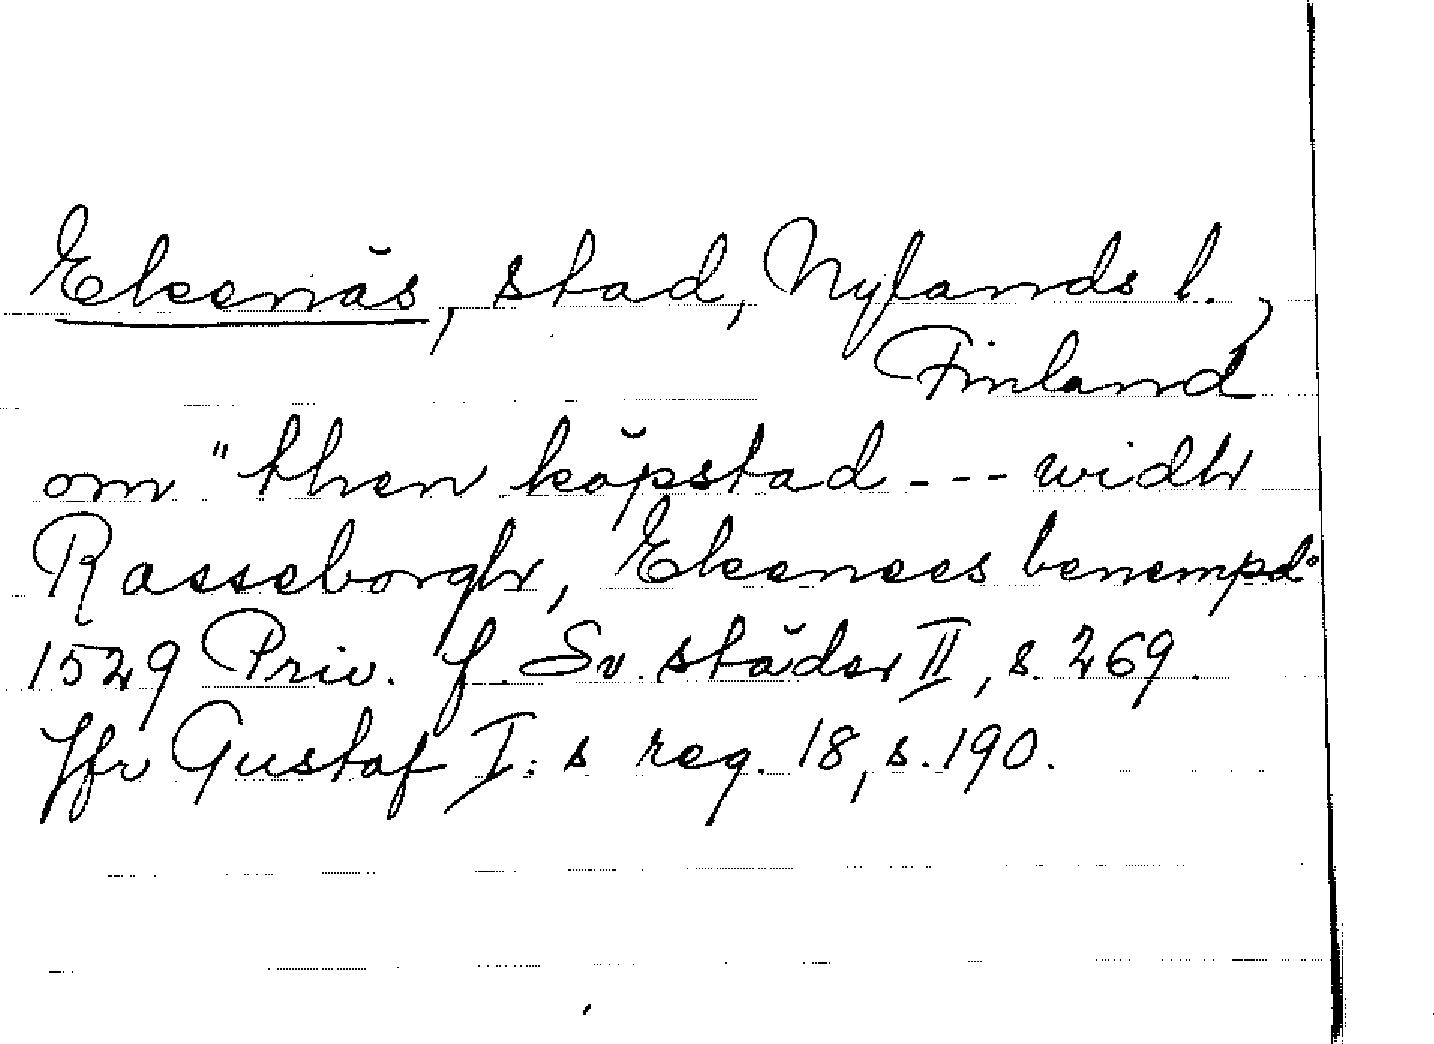 Ekenäs, stad, Nylands l.,
Finland
om "then köpstad --- widh
Rasseborgh, Ekenees benempd"
1529 Priv. f. Sv. städer II, s. 269.
Jfr Gustaf I:s reg. 18, s. 190.